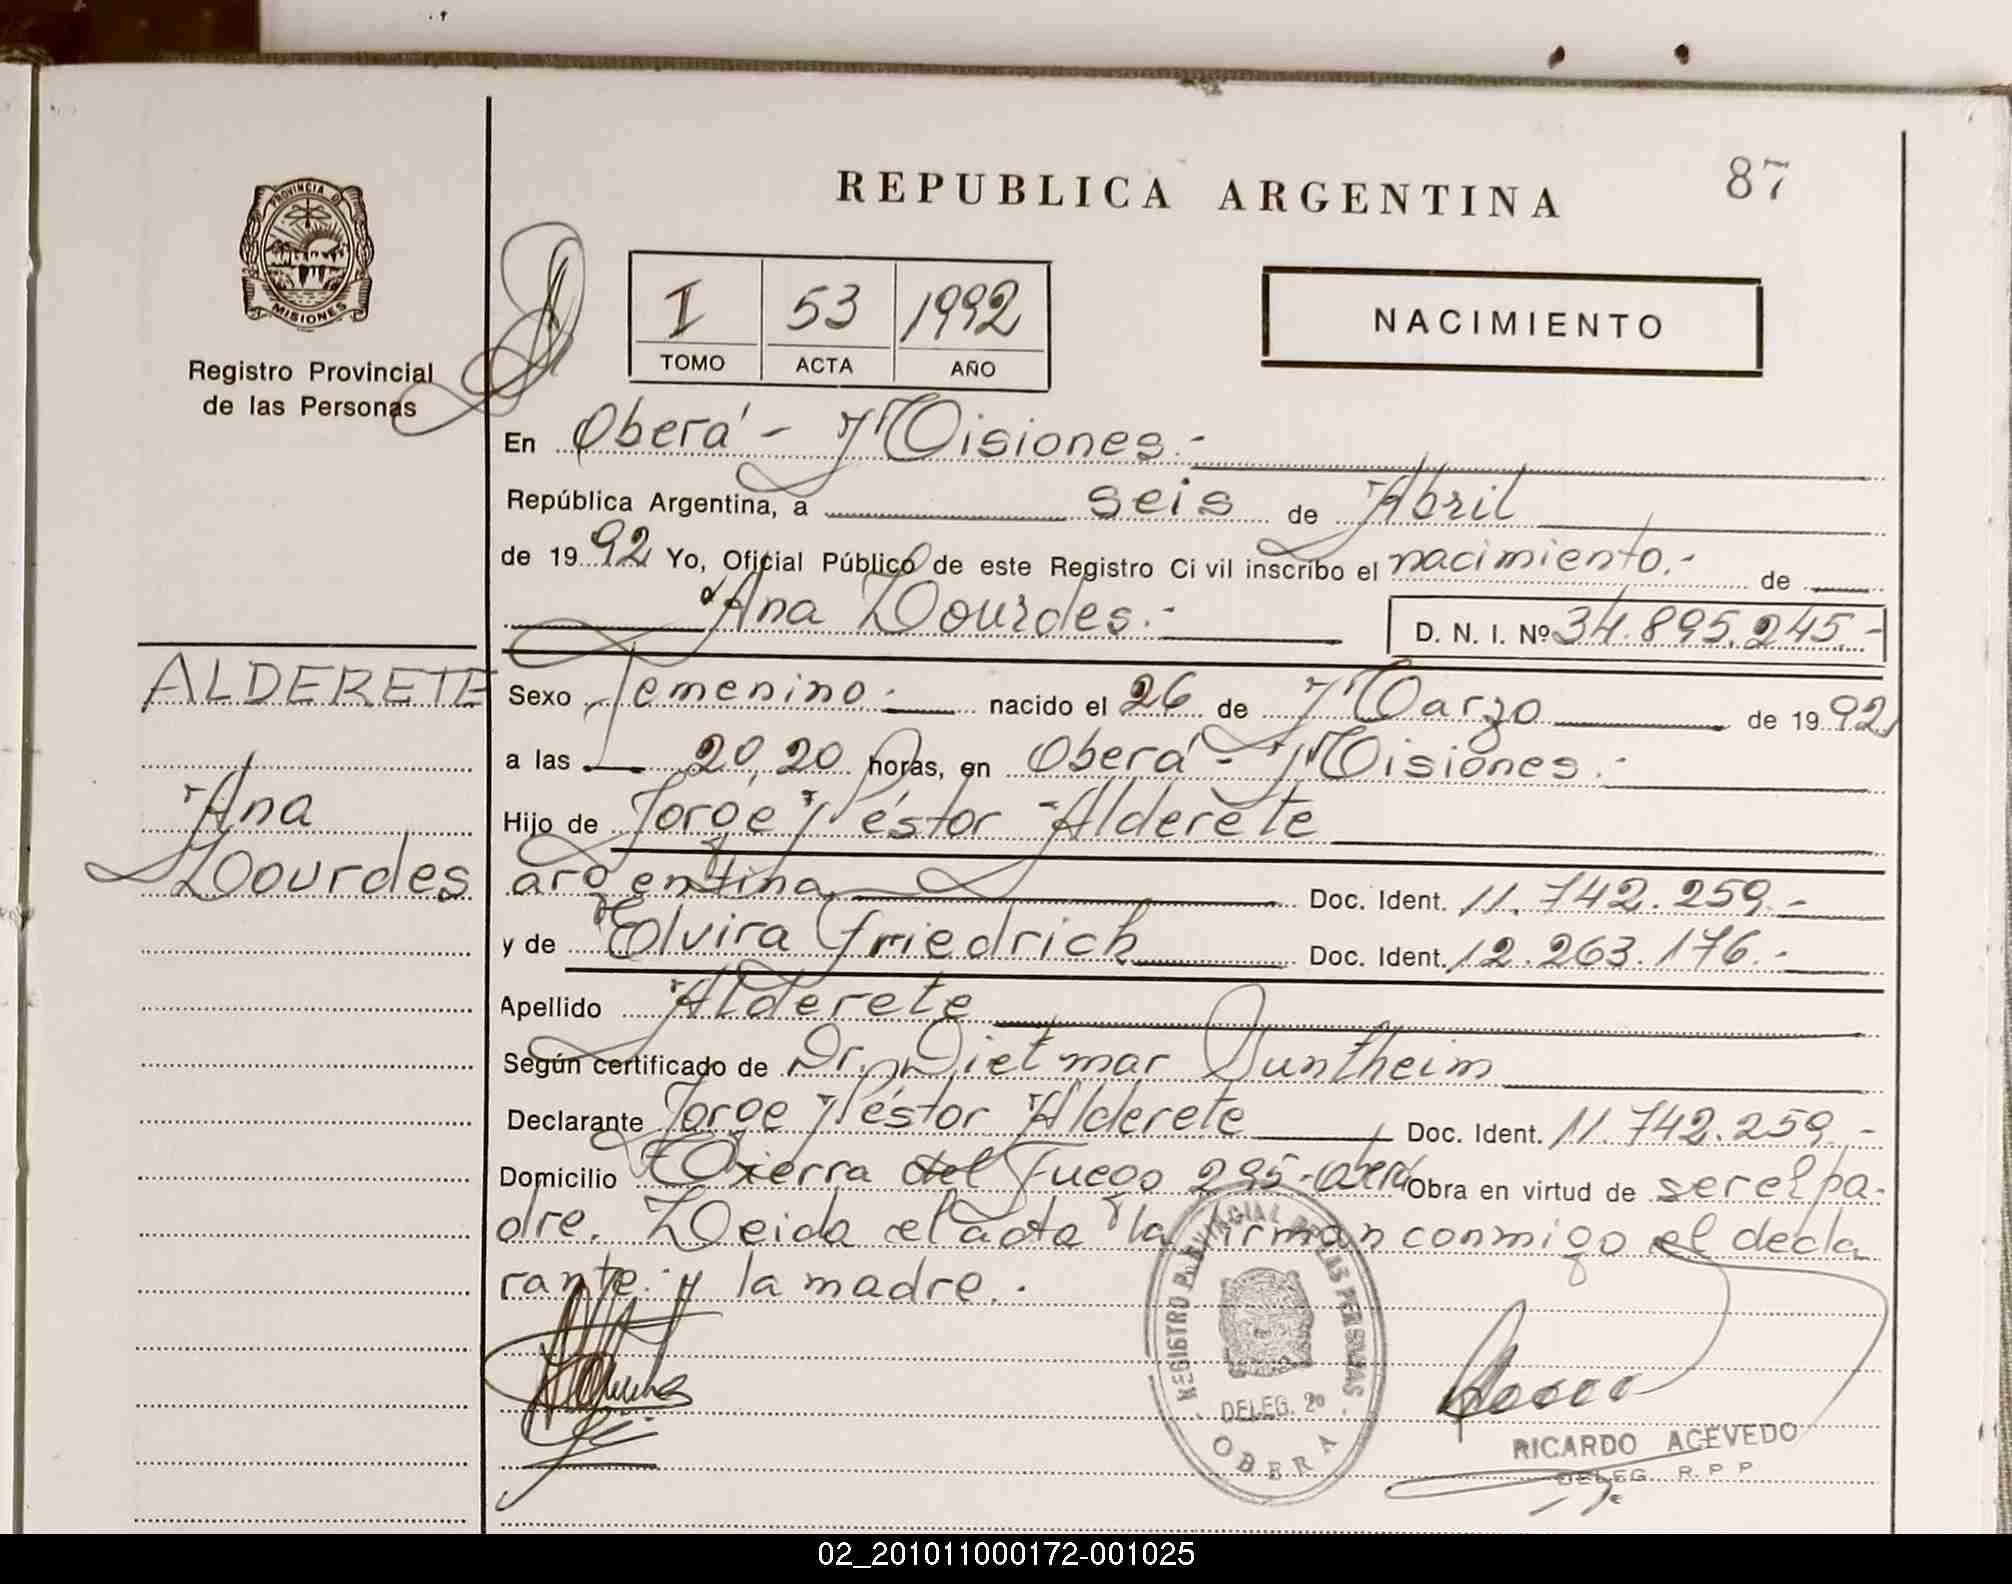 87
REPUBLICA ARGENTINA
PROVINCIA DE
MISIONES
Registro Provincial
de las Personas
I 53 1992
TOMO ACTA AÑO
NACIMIENTO
En Oberá - Misiones.-
República Argentina, a seis de Abril
de 1992 Yo, Oficial Público de este Registro Civil inscribo el nacimiento.- de
Ana Lourdes.- D. N. I. Nº 34.895.245.-
ALDERETE
Ana
Lourdes
Sexo femenino.- nacido el 26 de Marzo de 1992
a las 20,20 horas, en Oberá - Misiones.-
Hijo de Jorge Néstor Alderete
argentina Doc. Ident. 11.742.259.-
y de Elvira Friedrich Doc. Ident. 12.263.176.-
Apellido Alderete
Según certificado de Dr. Dietmar Suntheim
Declarante Jorge Néstor Alderete Doc. Ident. 11.742.259.-
Domicilio Tierra del Fuego 295-Oberá Obra en virtud de ser el pa-
dre. Leida el acta la firman conmigo el decla
rante.y la madre.-
REGISTRO PROVINCIAL DE LAS PERSONAS
DELEG. 2º
OBERA
RICARDO ACEVEDO
DELEG. R. P. P.
02_201011000172-001025